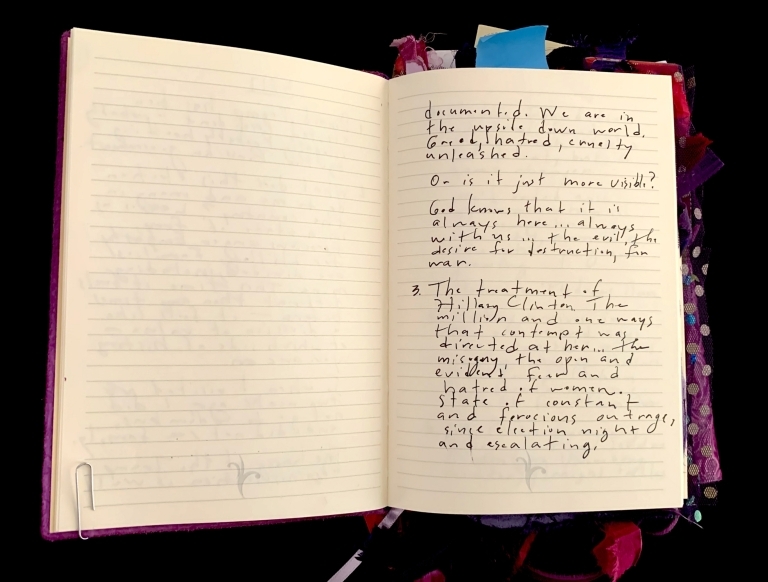 documented. We are in
the upside down world.
Greed, hatred, cruelty
unleashed.
Or is it just more visible?
God knows that it is
always here... always
with us... the evil, the
desire for destruction, for
war.
3. The treatment of
Hillary Clinton The
million and one ways
that contempt was
directed at her... the
misogyny, the open and
evident fear and
hatred of women.
State of constant
and ferocious outrage,
since election night
and escalating.